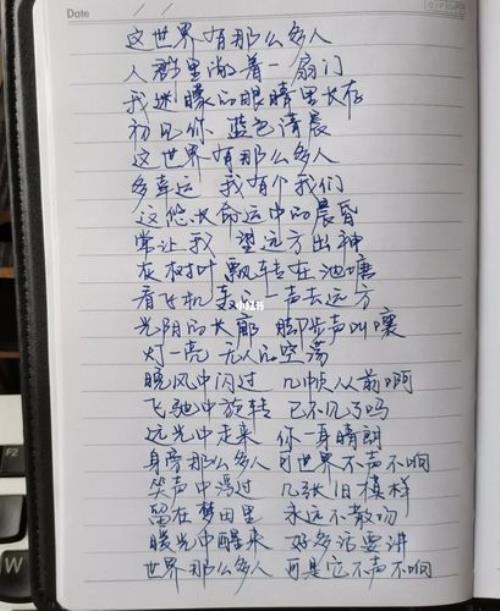 Date / /
这世界有那么多人
人群里敞着一扇门
我迷朦的眼睛里长存
初见你 蓝色清晨
这世界有那么多人
多幸运 我有个我们
这悠长命运中的晨昏
常让我 望远方出神
灰树叶飘转在池塘
看飞机轰的一声去远方
光阴的长廊 脚步声叫嚷
灯一亮 无人的空荡
晚风中闪过 几帧从前啊
飞驰中旋转 已不见了吗
远光中走来 你一身晴朗
身旁那么多人 可世界不声不响
笑声中浮过 几张旧模样
留在梦田里 永远不散场
暖光中醒来 好多话要讲
世界那么多人 可是它不声不响
小红书
F2
W